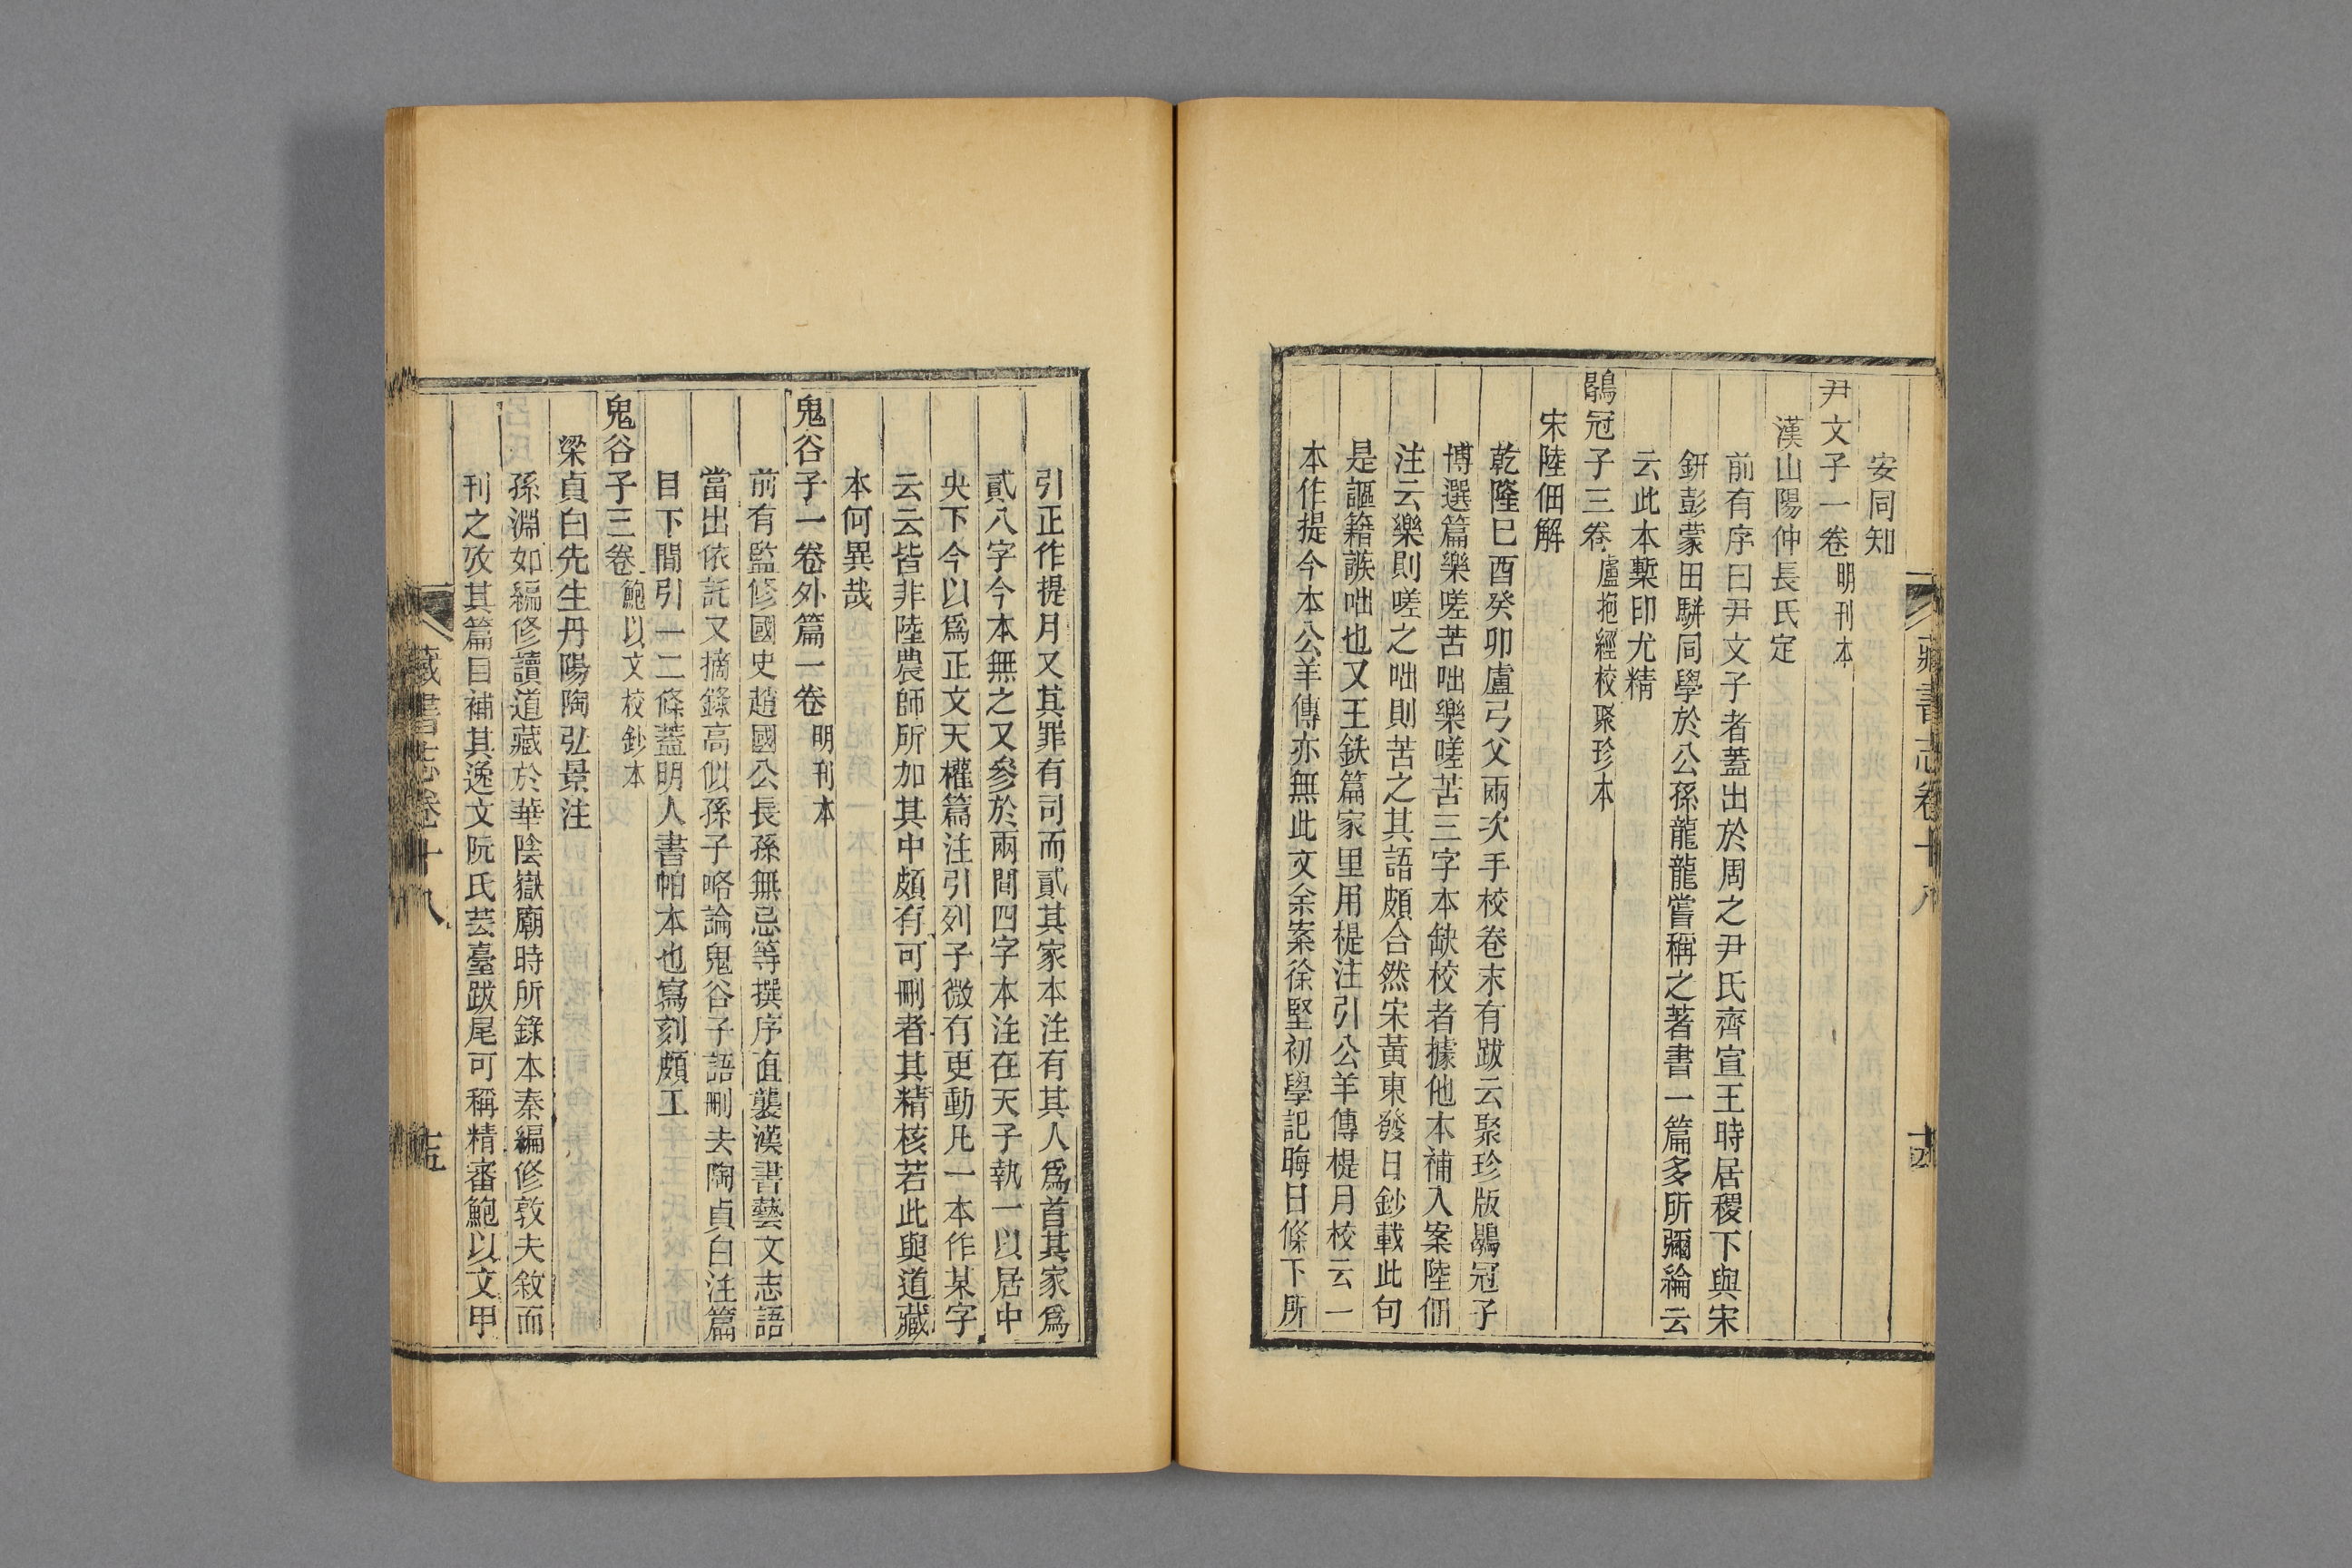 安同知
尹文子一卷明刊本
漢山陽仲長氏定
前有序曰尹文子者蓋出於周之尹氏齊宣王時居稷下與宋
鈃彭蒙田駢同學於公孫龍龍嘗稱之著書一篇多所彌綸云
云此本槧印尤精
鶡冠子三卷盧抱經校聚珍本
宋陸佃解
乾隆巳酉癸卯盧弓父兩次手校卷末有跋云聚珍版鶡冠子
博選篇樂嗟苦咄樂嗟苦三字本缺校者據他本補入案陸佃
注云樂則嗟之咄則苦之其語頗合然宋黃東發日鈔載此句
是謳籍謕咄也又王鈇篇家里用提注引公羊傳提月校云一
本作提今本公羊傳亦無此文余案徐堅初學記晦日條下所
藏書志卷十八
引正作提月又其罪有司而貳其家本注有其人爲首其家爲
貳八字今本無之又參於兩間四字本注在天子執一以居中
央下今以爲正文天權篇注引列子微有更動凡一本作某字
云云皆非陸農師所加其中頗有可刪者其精核若此與道藏
本何異哉
鬼谷子一卷外篇一卷明刊本
前有監修國史趙國公長孫無忌等撰序直襲漢書藝文志語
當出依託又摘錄高似孫子略論鬼谷子語刪去陶貞白注篇
目下間引一二條蓋明人書帕本也寫刻頗工
鬼谷子三卷鮑以文校鈔本
梁貞白先生丹陽陶弘景注
孫淵如編修讀道藏於華陰嶽廟時所錄本秦編修敦夫敘而
刊之攷其篇目補其逸文阮氏芸臺跋尾可稱精審鮑以文甲
藏書志卷十八